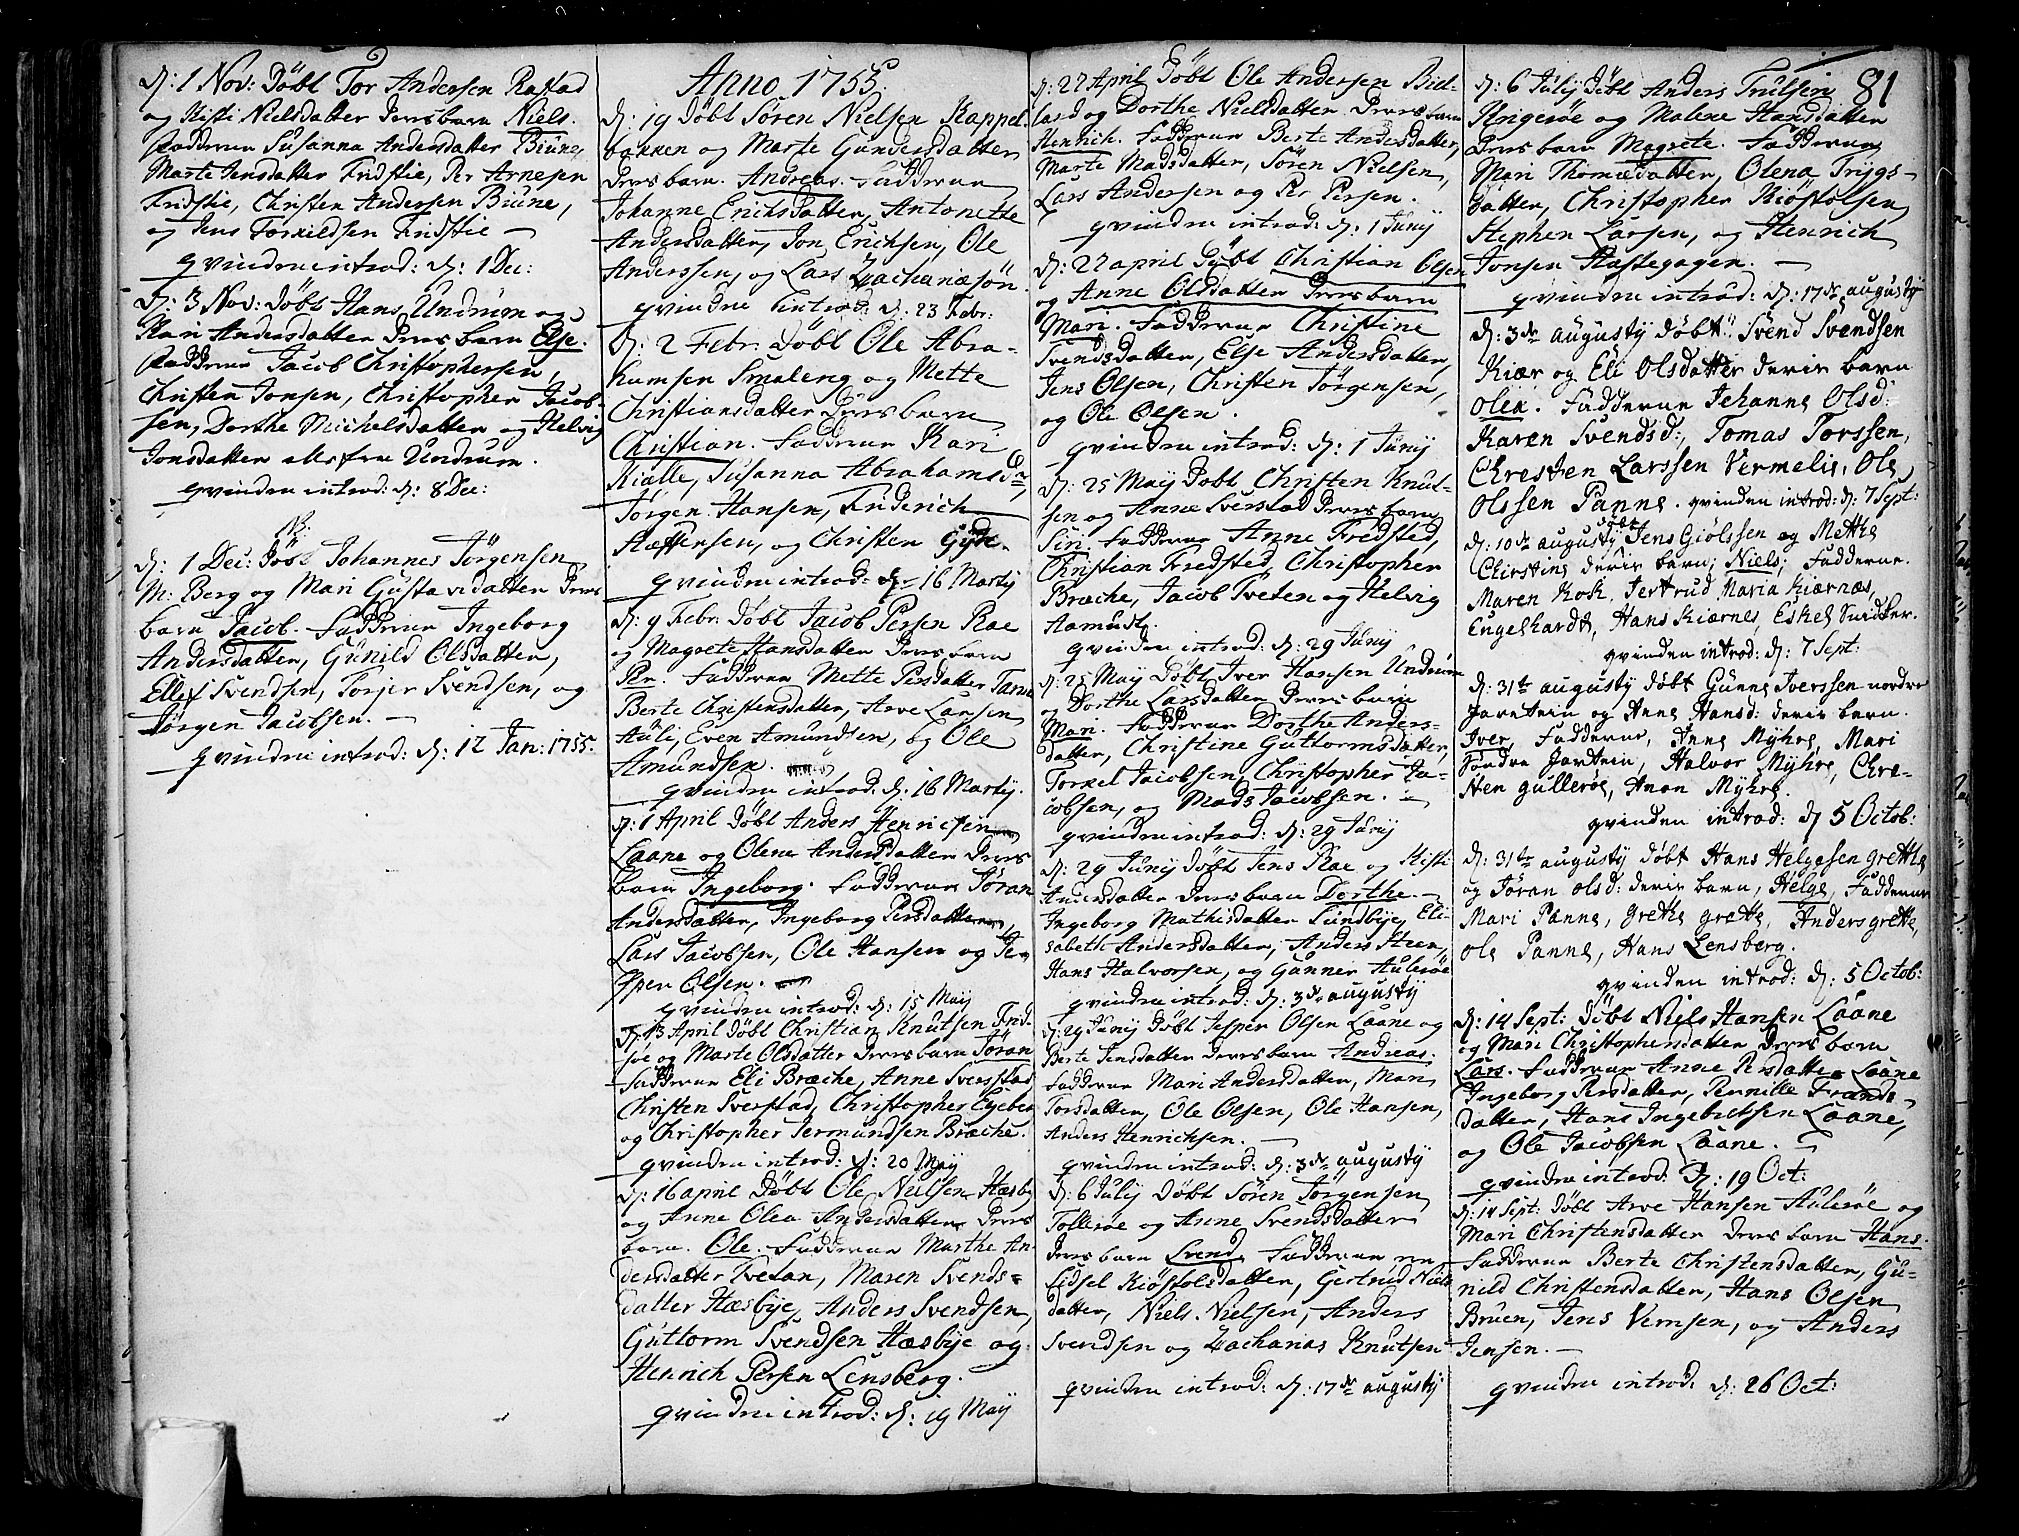 d: 1 Nov: Döbt Tor Andersen Rastad
og Kisti Nielsdatter Deres barn Niels.
Fadderne Susanna Andersdatter Biune,
Marte Jensdatter Fristie, Per Arnesen
Fristie, Christen Andersen Biune,
og Jens Torkildsen Fristie
qvinden introd: d: 1 Dec:
d: 3 Nov: döbt Hans Undrum og
Kari Andersdatter Deres barn Else.
Fadderne Jacob Christophersen,
Christen Jonsen, Christopher Jacob-
sen, Dorthe Michelsdatter og Helvig
Jonsdatter alle fra Undrum.
qvinden introd: d: 8 Dec:
NB.
d: 1 Dec: Döbt Johannes Törgensen
M: Berg og Mari Gustavsdatter Deres
barn Jacob. Fadderne Ingeborg
Andersdatter, Günild Olsdatter,
Ellef Svendsen, Torjer Svendsen, og
Jörgen Jacobsen.
qvinden introd: d: 12 Jan: 1755.
Anno 1755.
d: 19 döbt Sören Nielsen Kappel
bakken og Marte Gundersdatter
Deres barn. Andreas. Fadderne
Johanne Erichsdatter, Antonette
Andersdatter, Jon Erichsen, Ole
Anderssen, og Lars Zachariæsön.
qvinden introd: d: 23 Febr:
d: 2 Febr: Döbt Ole Abra-
hamsen Smaleng og Mette
Christiansdatter Deres barn
Christian. Fadderne Kari
Kialle, Susanna Abrahamsdr,
Jörgen Hansen, Friderich
Steffensen, og Christen Gyde.
qvinden introd: d: 16 Martij
d: 9 Febr: Döbt Jacob Persen Rae
og Magrete Hansdatter Deres barn
Per. Fadderne Mette Persdatter Tarne
Berte Christensdatter, Arve Larsen
Auli, Even Amundsen, og Ole
Amundsen.
qvinden introd: d: 16 Martij.
d: 1 April Döbt Anders Henricsen
Laane og Olene Andersdatter Deres
barn Ingeborg. Fadderne Jöran
Andersdatter, Ingeborg Persdatter,
Lars Jacobsen, Ole Hansen og Je-
sper Olsen.
qvinden introd: d: 15 May
d: 13 April Döbt Christian Knutsen Frid-
söe og Marte Olsdatter Deres barn Jöran
Fadderne Eli Bræche, Anne Sverstad
Christen Sverstad, Christopher Egeber
og Christopher Jermundsen Bræche.
qvinden introd: d: 20 May
d: 16 april Döbt Ole Nielsen Hæsby
og Anne Olea Andersdatter Deres
barn. Ole. Fadderne Marthe An-
dersdatter Tvetan, Maren Svends-
datter Hæsbye, Anders Svendsen,
Guttorm Svendsen Hæsbye og
Henrich Persen Lensberg.
qvinden introd: d: 19 Maij
d: 27 April Döbt Ole Andersen Biel-
land og Dorthe Nielsdatter Deres barn
Henrich. Fadderne Berte Andersdatter,
Marte Madsdatter, Sören Nielsen,
Lars Andersen og Per Persen.
qvinden introd: d: 1 Junij
d: 27 april Döbt Christian Olsen
og Anne Olsdatter Deres barn
Mari. Fadderne Christine
Svendsdatter, Else Andersdatter,
Jens Olsen, Christen Jörgensen,
og Ole Olsen.
qvinden introd: d: 1 Junij
d: 25 Maij Döbt Christen Knut-
sen og Anne Sverstad Deres barn
Siri. Fadderne Anne Fredsted,
Christian Fredsted, Christopher
Bræche, Jacob Tveten og Helvig
Aamundr.
qvinden introd: d: 29 Junij
d: 25 May Döbt Iver Hansen Undrum
og Dorthe Larsdatter Deres barn
Mari. Fadderne Dorthe Anders-
datter, Christine Guttormsdatter,
Torkel Jacobsen, Christopher Ja-
cobsen, og Mads Jacobsen.
qvinden introd: d: 29 Junij
d: 29 Junij Döbt Jens Rae og Kisti
Andersdatter Deres barn Dorthe
Ingeborg Mathisdatter Sundbye, Eli-
sabeth Andersdatter, Anders Steen,
Hans Halvorsen, og Gunner Aulesöe
qvinden introd: d: 3de augusty
d: 29 Junij Döbt Jesper Olsen Laane og
Berte Jensdatter Deres barn Andreas.
Fadderne Mari Andersdatter, Mari
Torsdatter, Ole Olsen, Ole Hansen,
Anders Henrichsen.
qvinden introd: d: 3de augusty
d: 6 Julij Döbt Sören Jörgensen
Tolleröe og Anne Svendsdatter
Deres barn Svend. Fadderne
Sidsel Kiöstolsdatter, Gertrud Niels
datter, Niels Nielsen, Anders
Svendsen og Zacharias Knutsen
qvinden introd: d: 17de augusty
81
d: 6 Julij Döbt Anders Trulsen
Ringeröe og Malene Hansdatter
Deres barn Magrete. Fadderne
Mari Thomædatter, Olena Trygs-
datter, Christopher Kiöstolsen,
Stephen Larsen, og Henrich
Jonsen Hastegagen.
qvinden introd: d: 17de augusty
d: 3de augusty döbt Svend Svendsen
Kiær og Eli Olsdatter deris barn
Olea. Fadderne Jehanne Olsd:
Karen Svendsd:, Tomas Torssen,
Chresten Larssen Vermelie, Ole
Olssen Panne. qvinden introd: d: 7 Sept:
d: 10de augusty döbt Jens Giölssen og Mette
Chirstine deris barn, Niels, Fadderne.
Maren Kok, Jertrud Maria Kiærnæs,
Engelhardt, Hans Kiærnes, Eskel Snidker.
qvinden introd: d: 7 Sept:
d: 31te augusty döbt Gunne Iverssen nordre
Jarstein og Anne Hansd: deris barn.
Iver, Fadderne, Anne Myhre, Mari
Söndre Jartein, Halvor Myhre, Chre-
sten gulleröe, Anon Myhre.
qvinden introd: d 5 Octob:
d: 31te augusty döbt Hans Helgesen grette
og Jöran Olsd: deris barn, Helge, Fadderne
Mari Panne, Grethe grette, Anders grette,
Ole Panne, Hans Lensberg.
qvinden introd: d: 5 Octob:
d: 14 Sept: Döbt Niels Hansen Laane
og Mari Christophersdatter Deres barn
Lars. Fadderne Anne Persdatter Laane
Ingeborg Persdatter, Pernille Frands-
datter, Hans Ingebretsen Laane,
og Ole Jacobsen Laane.
qvinden introd: d: 19 Oct:
d: 14 Sept: döbt Arve Hansen Auleröe og
Mari Christensdatter Deres barn Hans.
Fadderne Berte Christensdatter, Gu-
nild Christensdatter, Hans Olsen
Bruen, Jens Vernsen, og Anders
Jensen.
qvinden introd: d: 26 Oct: